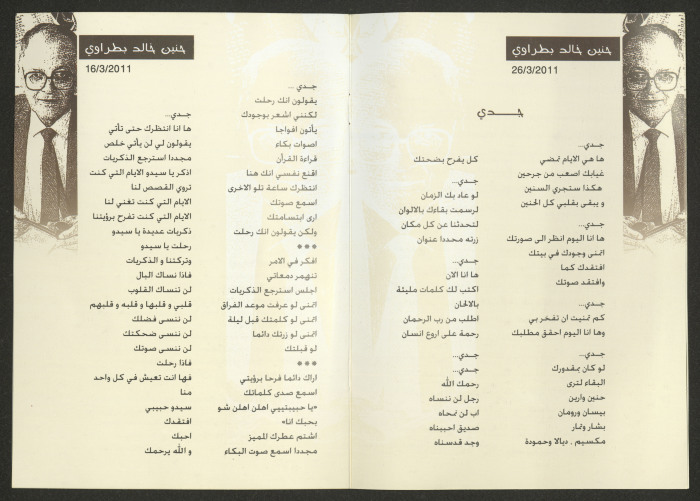 حنين خالد بطراوي
26/3/2011
جـــدي
جـدي...
ها هي الايام تمضي
غيابك اصعب من جرحين
هكذا ستجري السنين
و يبقى بقلبي كل الحنين
جـدي...
ها انا اليوم انظر الى صورتك
اتمنى وجودك في بيتك
افتقدك كما
وافتقد صوتك
جـدي...
كم تمنيت ان تفخر بي
وها انا اليوم احقق مطلبك
جـدي...
لو كان بمقدورك
البقاء لترى
حنين وارين
بيسان ورومان
بشار وتمار
مكسيم , ديالا وحمودة
كل يفرح بضحتك
جـدي...
لو عاد بك الزمان
لرسمت بقاءك بالالوان
لتحدثنا عن كل مكان
زرته محددا عنوان
جـدي...
ها انا الان
اكتب لك كلمات مليئة
بالالحان
اطلب من رب الرحمان
رحمة على اروع انسان
جـدي...
جـدي...
رحمك الله
رجل لن ننساه
اب لن نمحاه
صديق احببناه
وجد قدسناه
حنين خالد بطراوي
16/3/2011
جـدي...
ها انا انتظرك حتى تأتي
يقولون لي لن يأتي خلص
مجددا استرجع الذكريات
اذكر يا سيدو الايام التي كنت
تروي القصص لنا
الايام التي كنت تغني لنا
الايام التي كنت تفرح برؤيتنا
ذكريات عديدة يا سيدو
رحلت يا سيدو
وتركتنا و الذكريات
فاذا نساك البال
لن تنساك القلوب
قلبي و قلبها و قلبه و قلبهم
لن ننسى فضلك
لن ننسى ضحكتك
لن ننسى صوتك
فاذا رحلت
فها انت تعيش في كل واحد
منا
سيدو حبيبي
افتقدك
احبك
و الله يرحمك
جـدي ...
يقولون انك رحلت
لكنني اشعر بوجودك
يأتون افواجا
اصوات بكاء
قراءة القرآن
اقنع نفسي انك هنا
انتظرك ساعة تلو الاخرى
اسمع صوتك
ارى ابتسامتك
ولكن يقولون انك رحلت
***
افكر في الامر
تنهمر دمعاتي
اجلس استرجع الذكريات
اتمنى لو عرفت موعد الفراق
اتمنى لو كلمتك قبل ليلة
اتمنى لو زرتك دائما
لو قبلتك
***
اراك دائما فرحا برؤيتي
اسمع صدى كلماتك
«يا حبيبتييي اهلن اهلن شو
بحبك انا»
اشتم عطرك المميز
مجددا اسمع صوت البكاء